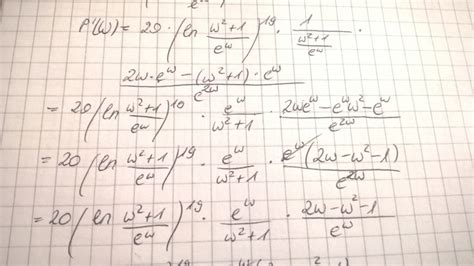 P'(ω) = 20 · (ln (ω²+1)/(e^ω))^19 · 1/((ω²+1)/(e^ω)) ·
(2ω·e^ω − (ω²+1)·e^ω)/(e^2ω)
= 20 (ln (ω²+1)/(e^ω))^19 · (e^ω)/(ω²+1) · (2ωe^ω − e^ωω² − e^ω)/(e^2ω)
= 20 (ln (ω²+1)/(e^ω))^19 · (e^ω)/(ω²+1) · (e^ω(2ω−ω²−1))/(e^2ω)
= 20 (ln (ω²+1)/(e^ω))^19 · (e^ω)/(ω²+1) · (2ω−ω²−1)/(e^ω)